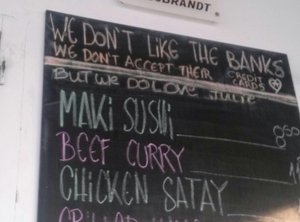 WE DON'T LIKE THE BANKS
WE DON'T ACCEPT THEIR CREDIT CARDS
BUT WE DO LOVE
MAKI SUSHI
BEEF CURRY
CHICKEN SATAY